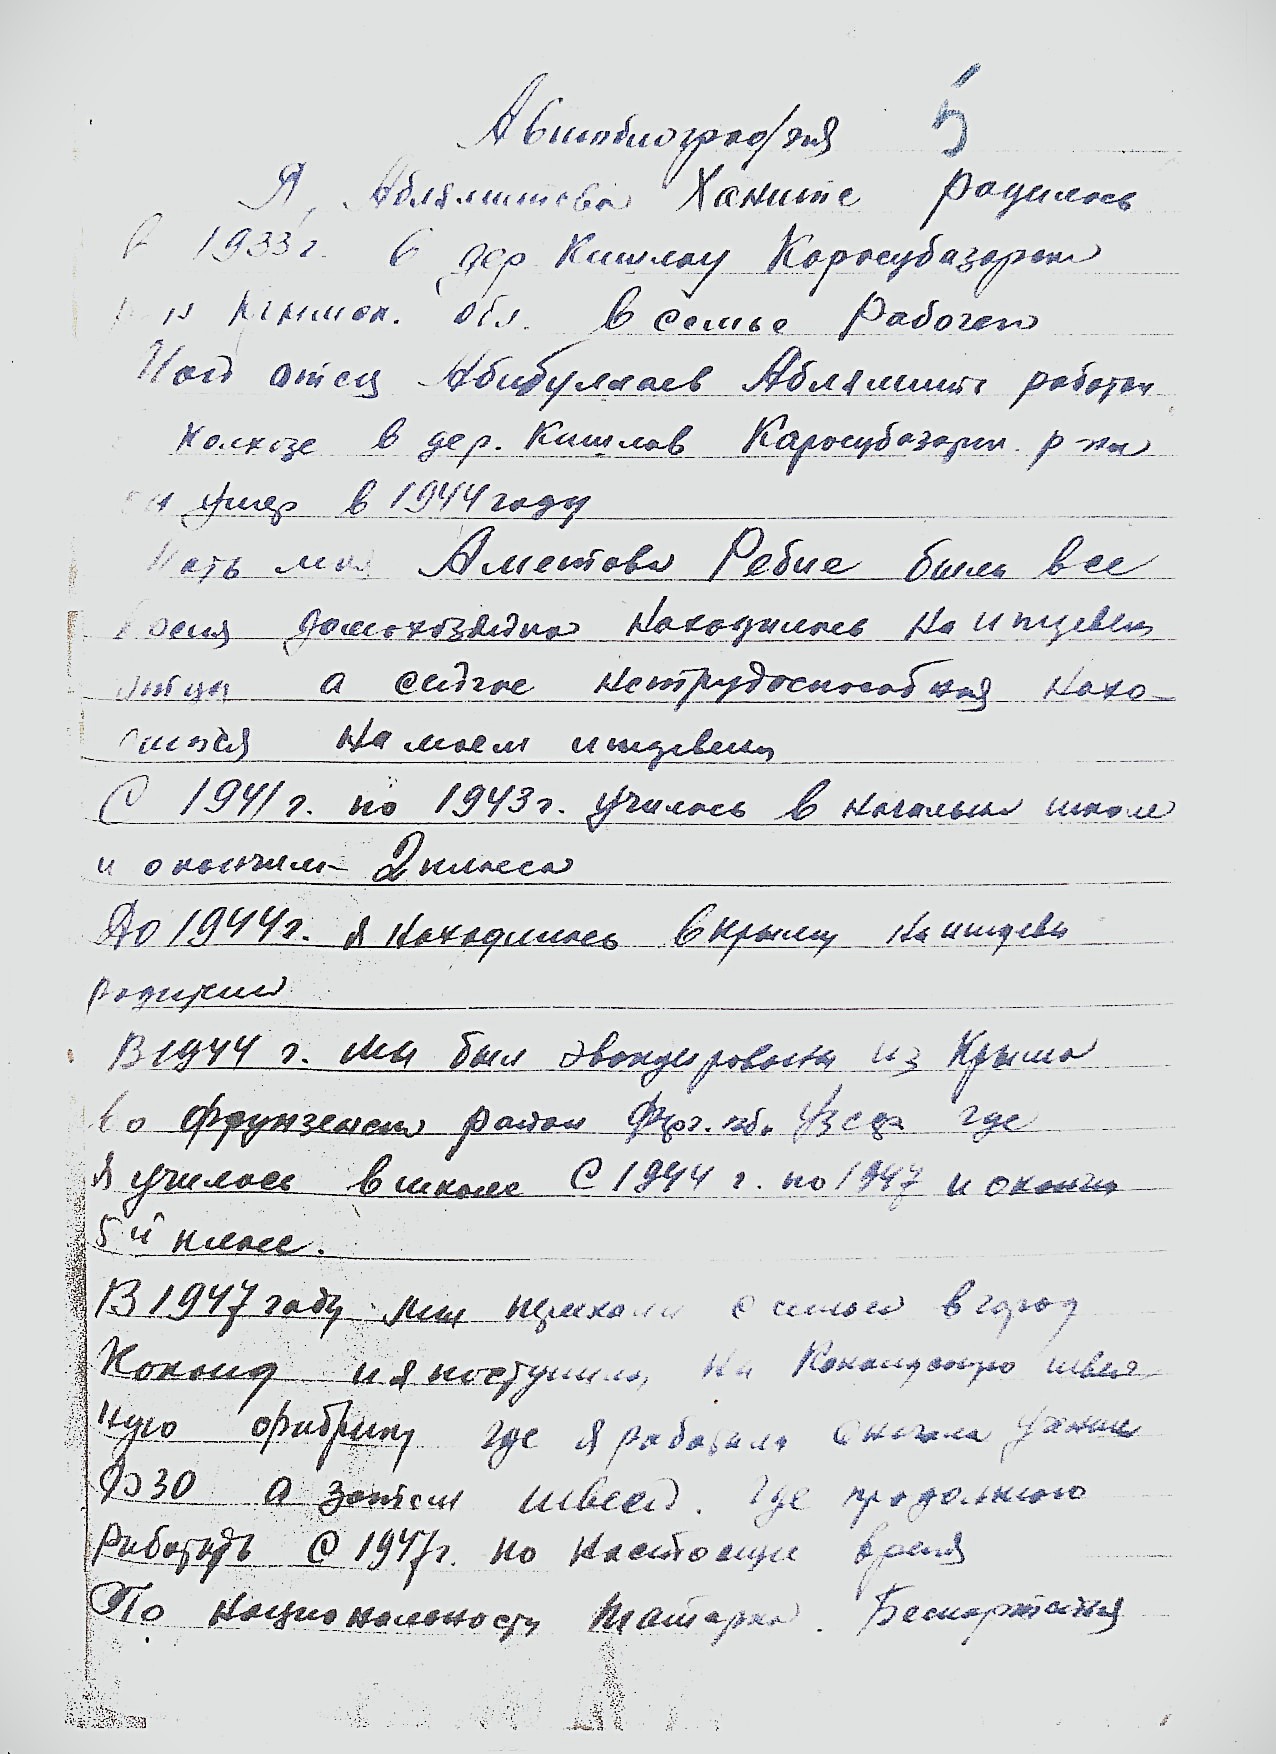 Автобиография 5
Я, Аблямитова Ханите родилась
в 1933 г. в дер Кишлау Карасубазарск
р-н Крымск. обл. в семье рабочего
Мой отец Абибуллаев Аблямит работал
колхозе в дер. Кишлав Карасубазарск. р-на
он умер в 1944 году
Мать моя Аметова Ребие была все
время домохозяйка находилась на иждевен
отца а сейчас нетрудоспособная нахо-
дится на моем иждевени
С 1941 г. по 1943 г. училась в начальн школе
и окончила 2 класса
До 1944 г. я находилась в Крыму на иждеве
родители
В 1944 г. мы был эвакуированы из Крыма
во Фрунзенски район Фер. об. Узб где
я училась в школе С 1944 г. по 1947 и окончи
5й класс.
В 1947 году мы приехали с семьей в город
Коканд и я поступила на Кокандскую швей-
ную фабрику где я работала сначала учении
ФЗО а затем швеей. Где продолжаю
работать С 1947 г. по настоящие время
По национальности татарка. Беспартийная